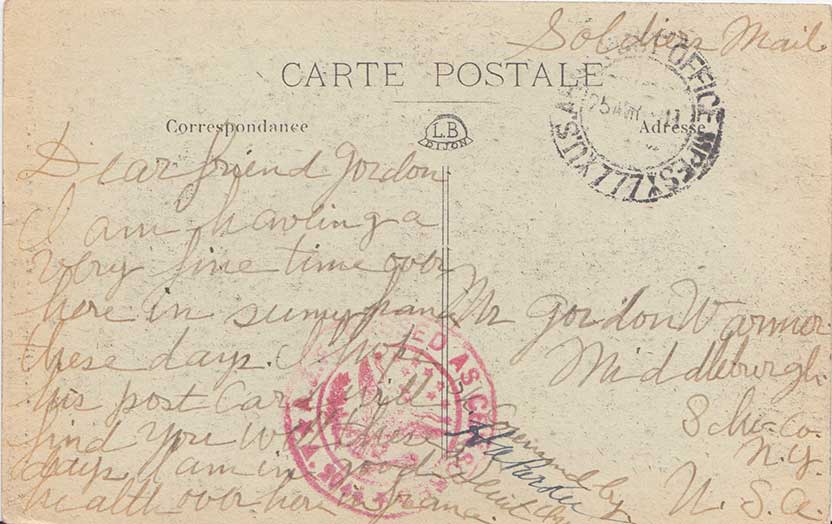 Soldiers Mail
CARTE POSTALE
Correspondance
L.B
DIJON
Adresse
OFFICE
25
Dear friend Gordon
I am having a
very fine time over
here in sunny france
these days. I hope
this post card will
find you well these
days. I am in good
health over here in france.
Mr Gordon Warner
Middleburgh
Scho. Co.
N.Y.
U. S. A.
A.S. CENSOR
Censored by
Lieut